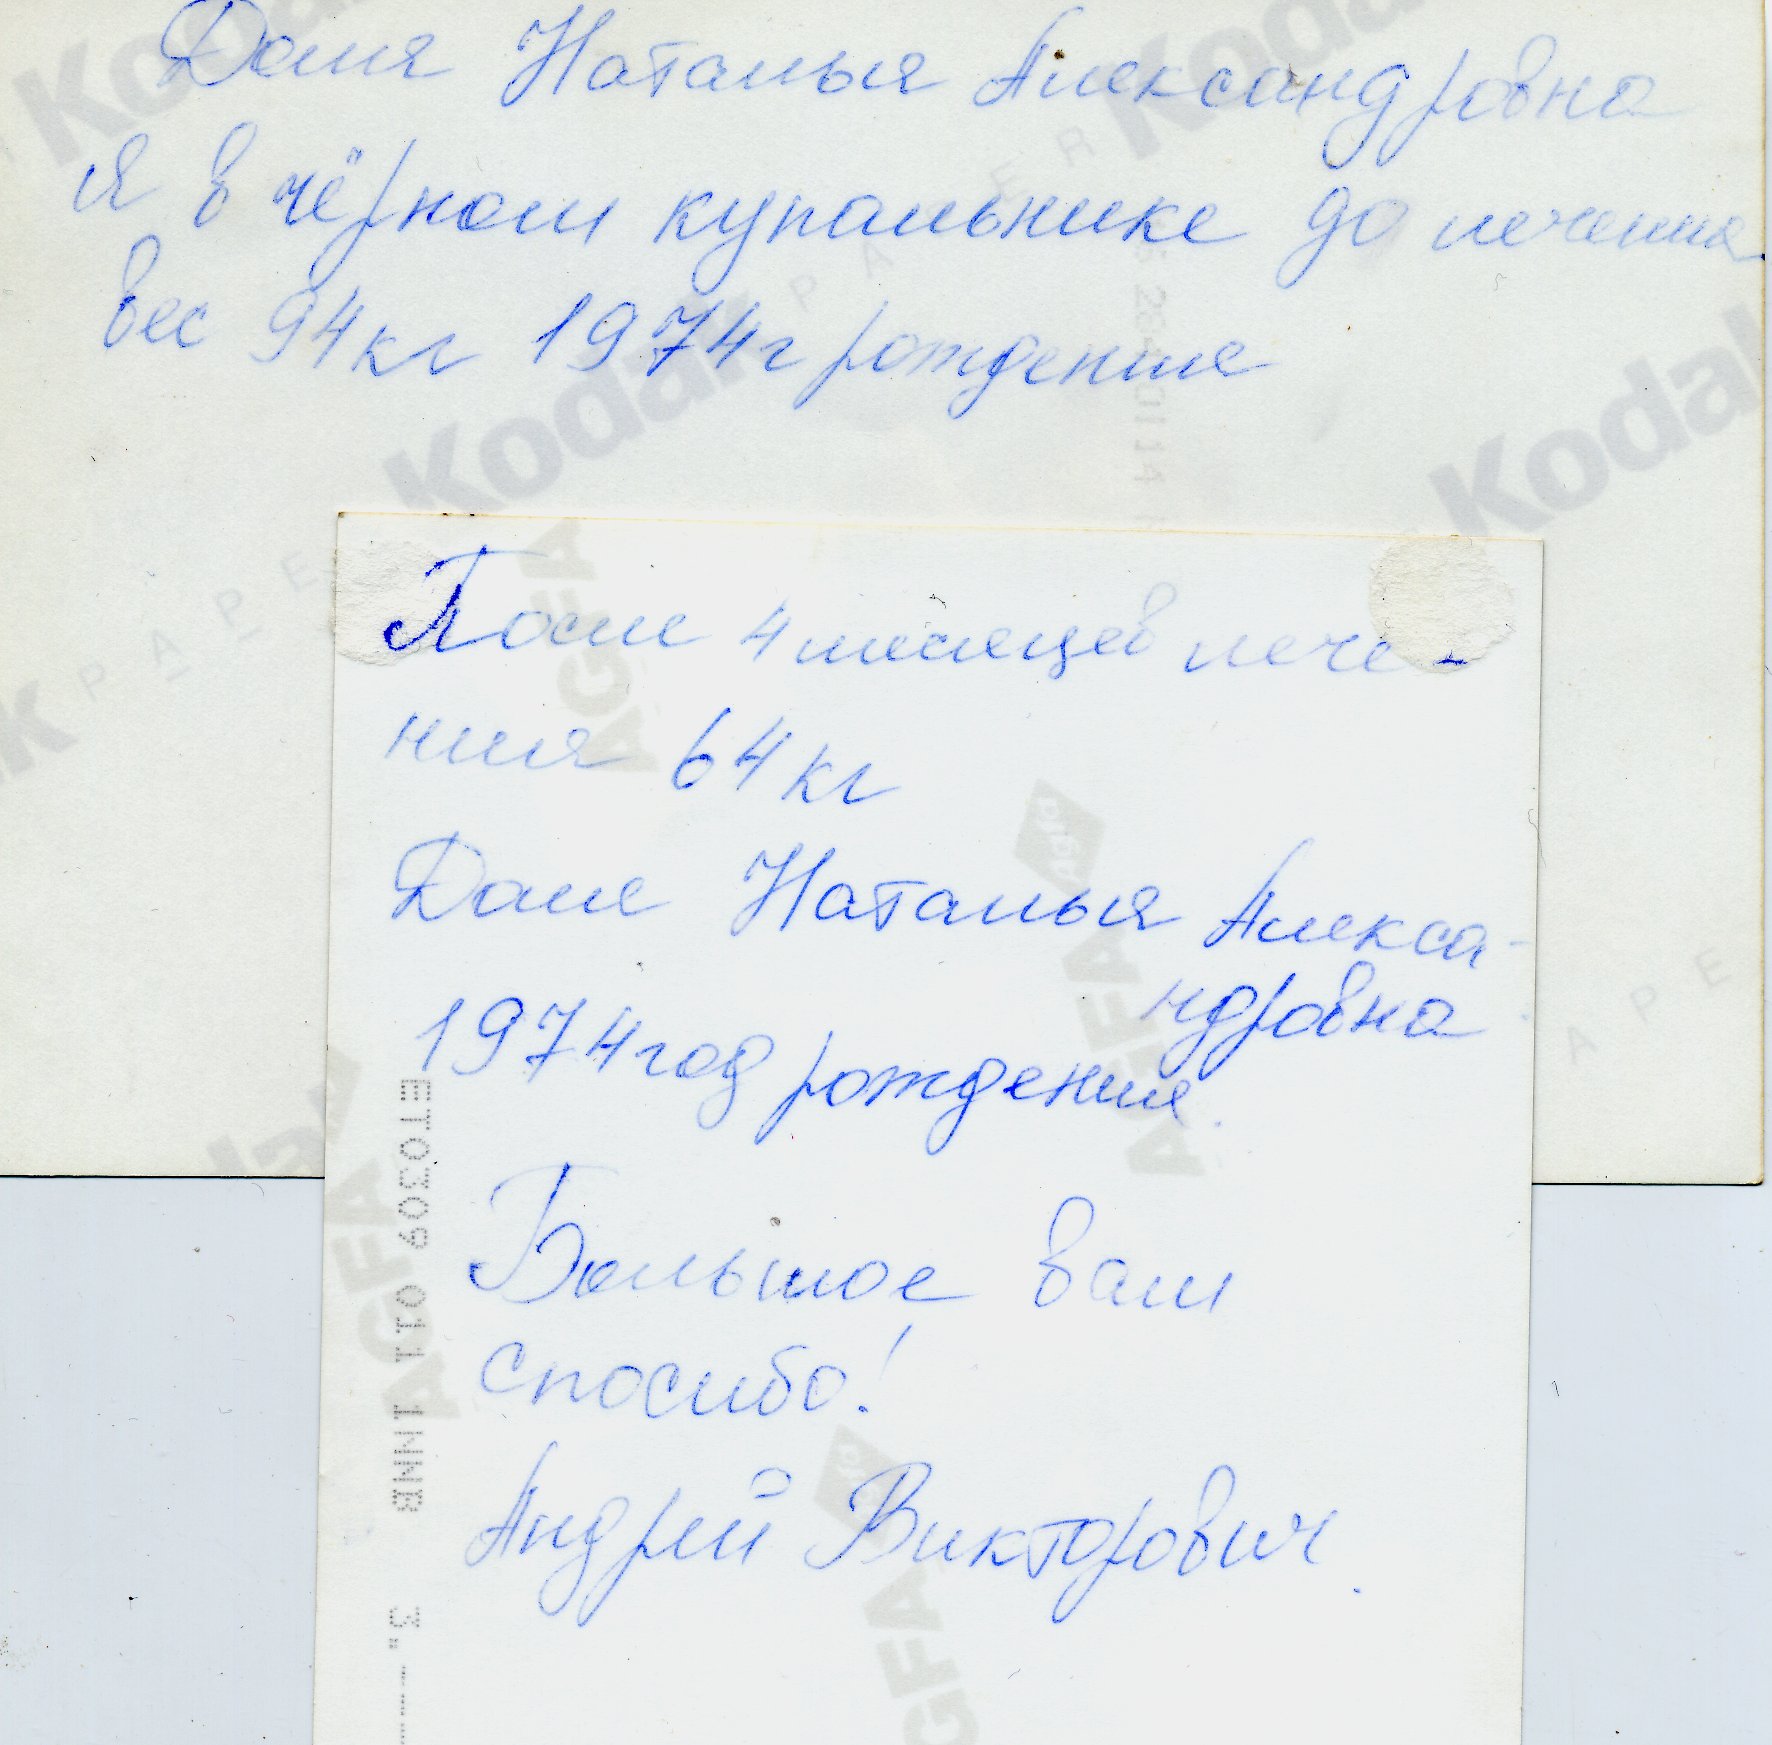 Даля Наталья Александровна
Я в чёрном купальнике до лечения
вес 94кг 1974г рождения
После 4 месяцев лече-
ния 64кг
Даля Наталья Алекса-
ндровна
1974год рождения.
Большое вам
спасибо!
Андрей Викторович.
Kodak
Kodak
Kodak
Kodak
PAPER
AGFA
AGFA
AGFA
AGFA